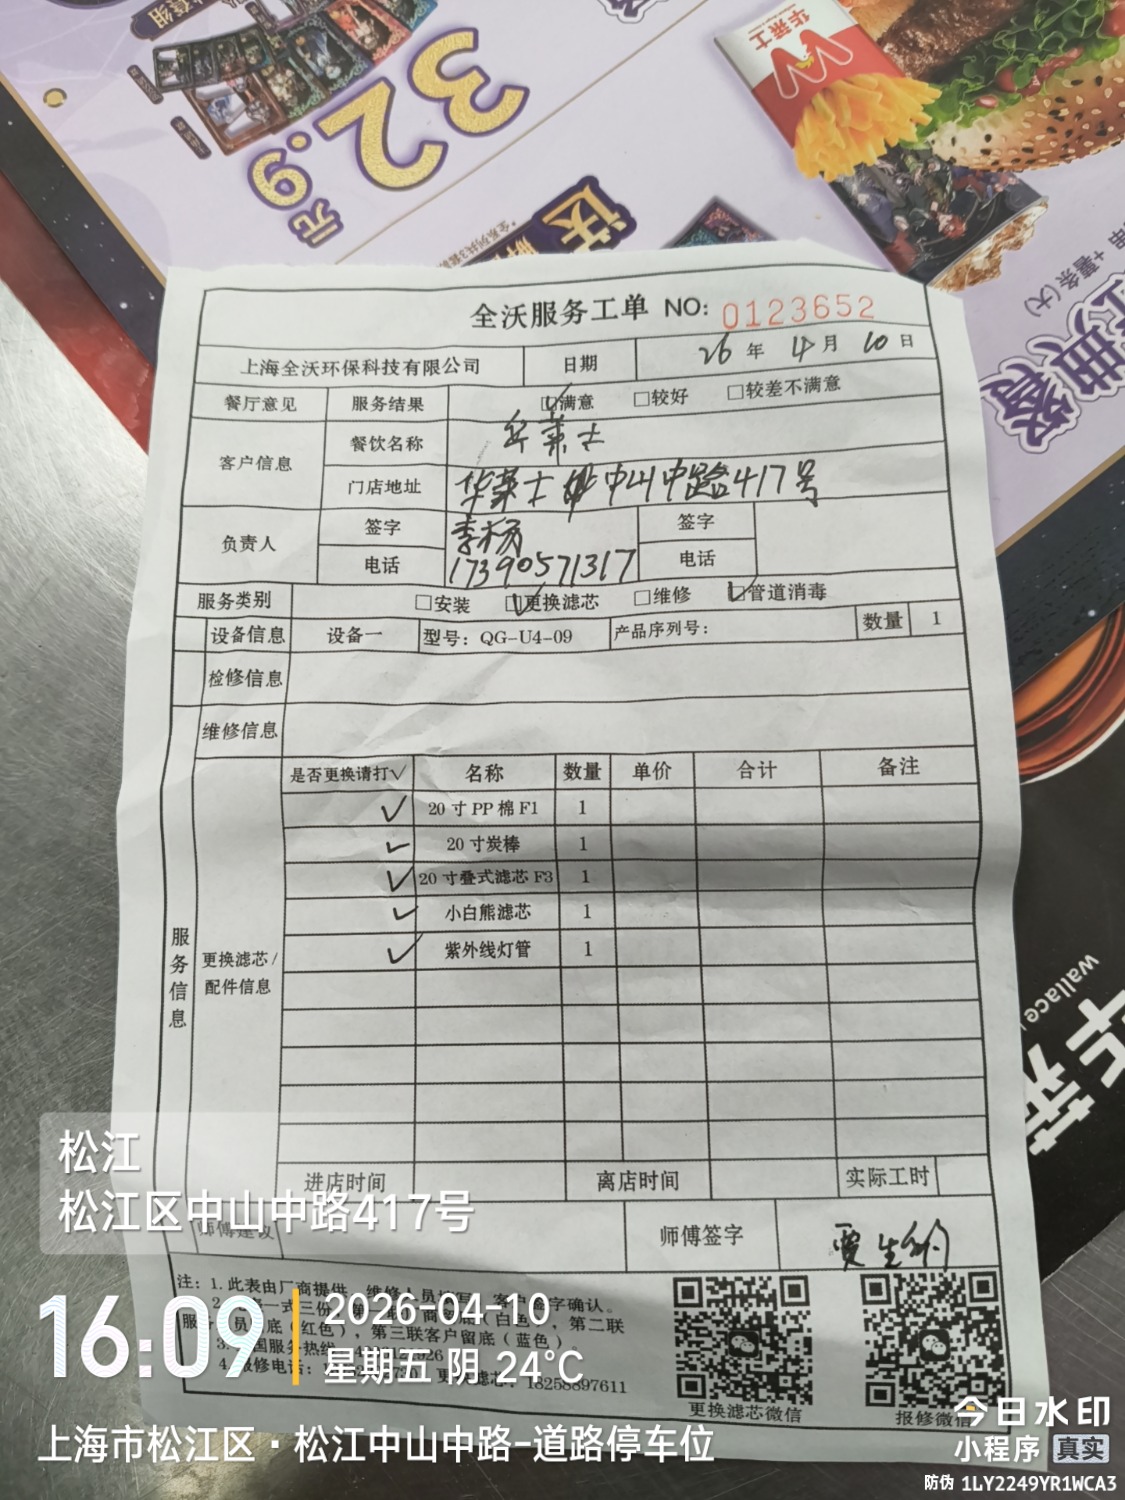 32.9
元
华莱士
全沃服务工单 NO: 0123652
上海全沃环保科技有限公司 日期 26年 4月 10日
餐厅意见 服务结果 ☑满意 □较好 □较差不满意
客户信息 餐饮名称 华莱士
门店地址 华莱士 中山中路417号
负责人 签字 签字
电话 17390571317 电话
服务类别 □安装 ☑更换滤芯 □维修 ☑管道消毒
设备信息 设备一 型号: QG-U4-09 产品序列号: 数量 1
检修信息
维修信息
服务信息
更换滤芯/
配件信息
是否更换请打√ 名称 数量 单价 合计 备注
✓ 20寸PP棉F1 1
✓ 20寸炭棒 1
✓ 20寸叠式滤芯F3 1
✓ 小白熊滤芯 1
✓ 紫外线灯管 1
进店时间 离店时间 实际工时
师傅建议 师傅签字
注: 1. 此表由厂商提供
更换滤芯: 18258897611
更换滤芯微信 报修微信
wallace
松江
松江区中山中路417号
16:09
2026-04-10
星期五 阴 24℃
上海市松江区·松江中山中路-道路停车位
今日水印
小程序 真实
防伪 1LY2249YR1WCA3